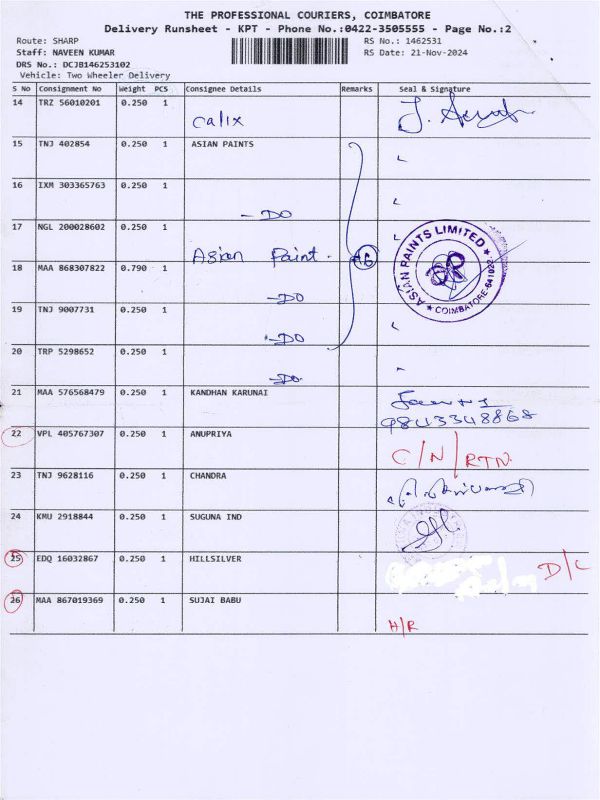 THE PROFESSIONAL COURIERS, COIMBATORE
Delivery Runsheet - KPT - Phone No.:0422-3505555 - Page No.:2
Route: SHARP RS No.: 1462531
Staff: NAVEEN KUMAR RS Date: 21-Nov-2024
DRS No.: DCJB146253102
Vehicle: Two Wheeler Delivery
S No Consignment No Weight PCS Consignee Details Remarks Seal & Signature
14 TRZ 56010201 0.250 1 Calix
15 TNJ 402854 0.250 1 ASIAN PAINTS
16 IXM 303365763 0.250 1 - DO
17 NGL 200028602 0.250 1 Asian Paint.
ASIAN PAINTS LIMITED
COIMBATORE-641022
18 MAA 868307822 0.790 1 - DO
19 TNJ 9007731 0.250 1 - DO
20 TRP 5298652 0.250 1 - DO
21 MAA 576568479 0.250 1 KANDHAN KARUNAI
9843348868
22 VPL 405767307 0.250 1 ANUPRIYA C/N/RTN
23 TNJ 9628116 0.250 1 CHANDRA
24 KMU 2918844 0.250 1 SUGUNA IND
25 EDQ 16032867 0.250 1 HILLSILVER D/L
26 MAA 867019369 0.250 1 SUJAI BABU H/R